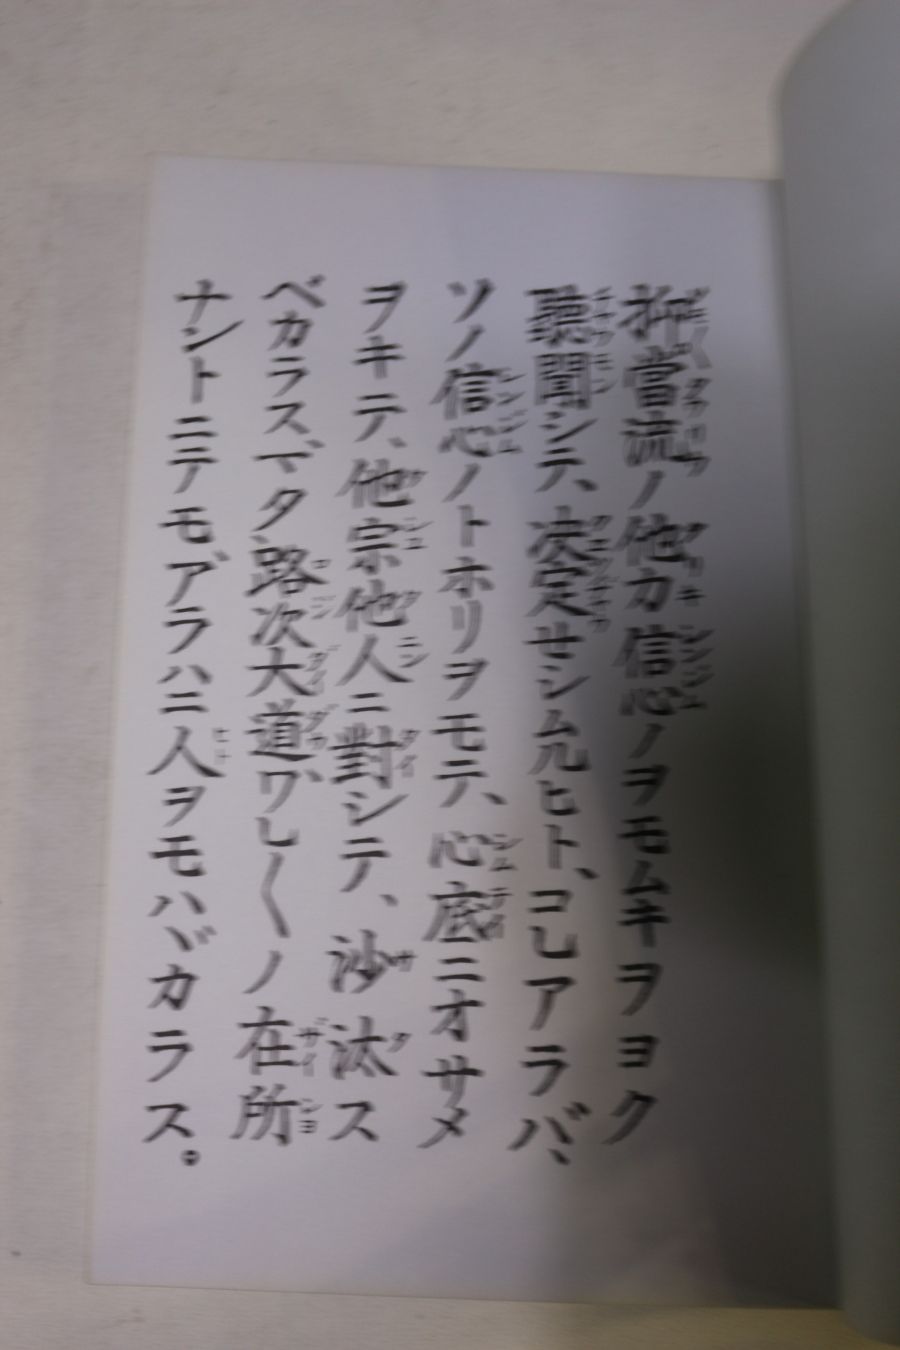 抑當流ノ他力信心ノヲモムキヲヨク
聽聞シテ、決定せシムルヒト、コレアラバ、
ソノ信心ノトホリヲモテ、心底ニオサメ
ヲキテ、他宗他人ニ對シテ、沙汰ス
ベカラス、マタ路次大道ワレ〱ノ在所
ナントニテモ、アラハニ人ヲモハヾカラス。